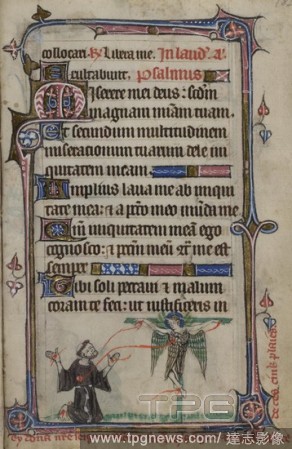 collocari. R Libera me. In laud' a.
Exultabunt. Psalmus
Miserere mei deus: scdm
magnam miam tuam.
Et secundum multitudinem
miserationum tuarum dele ini
quitatem meam.
Amplius laua me ab iniqui
tate mea: & a pcco meo munda me
Qm iniquitatem meam ego
cognosco: & pccm meu ct me est
semper
Tibi soli peccaui & malum
coram te feci: ut iustificeris in
TPG
www.tpgnews.com / 達志影像